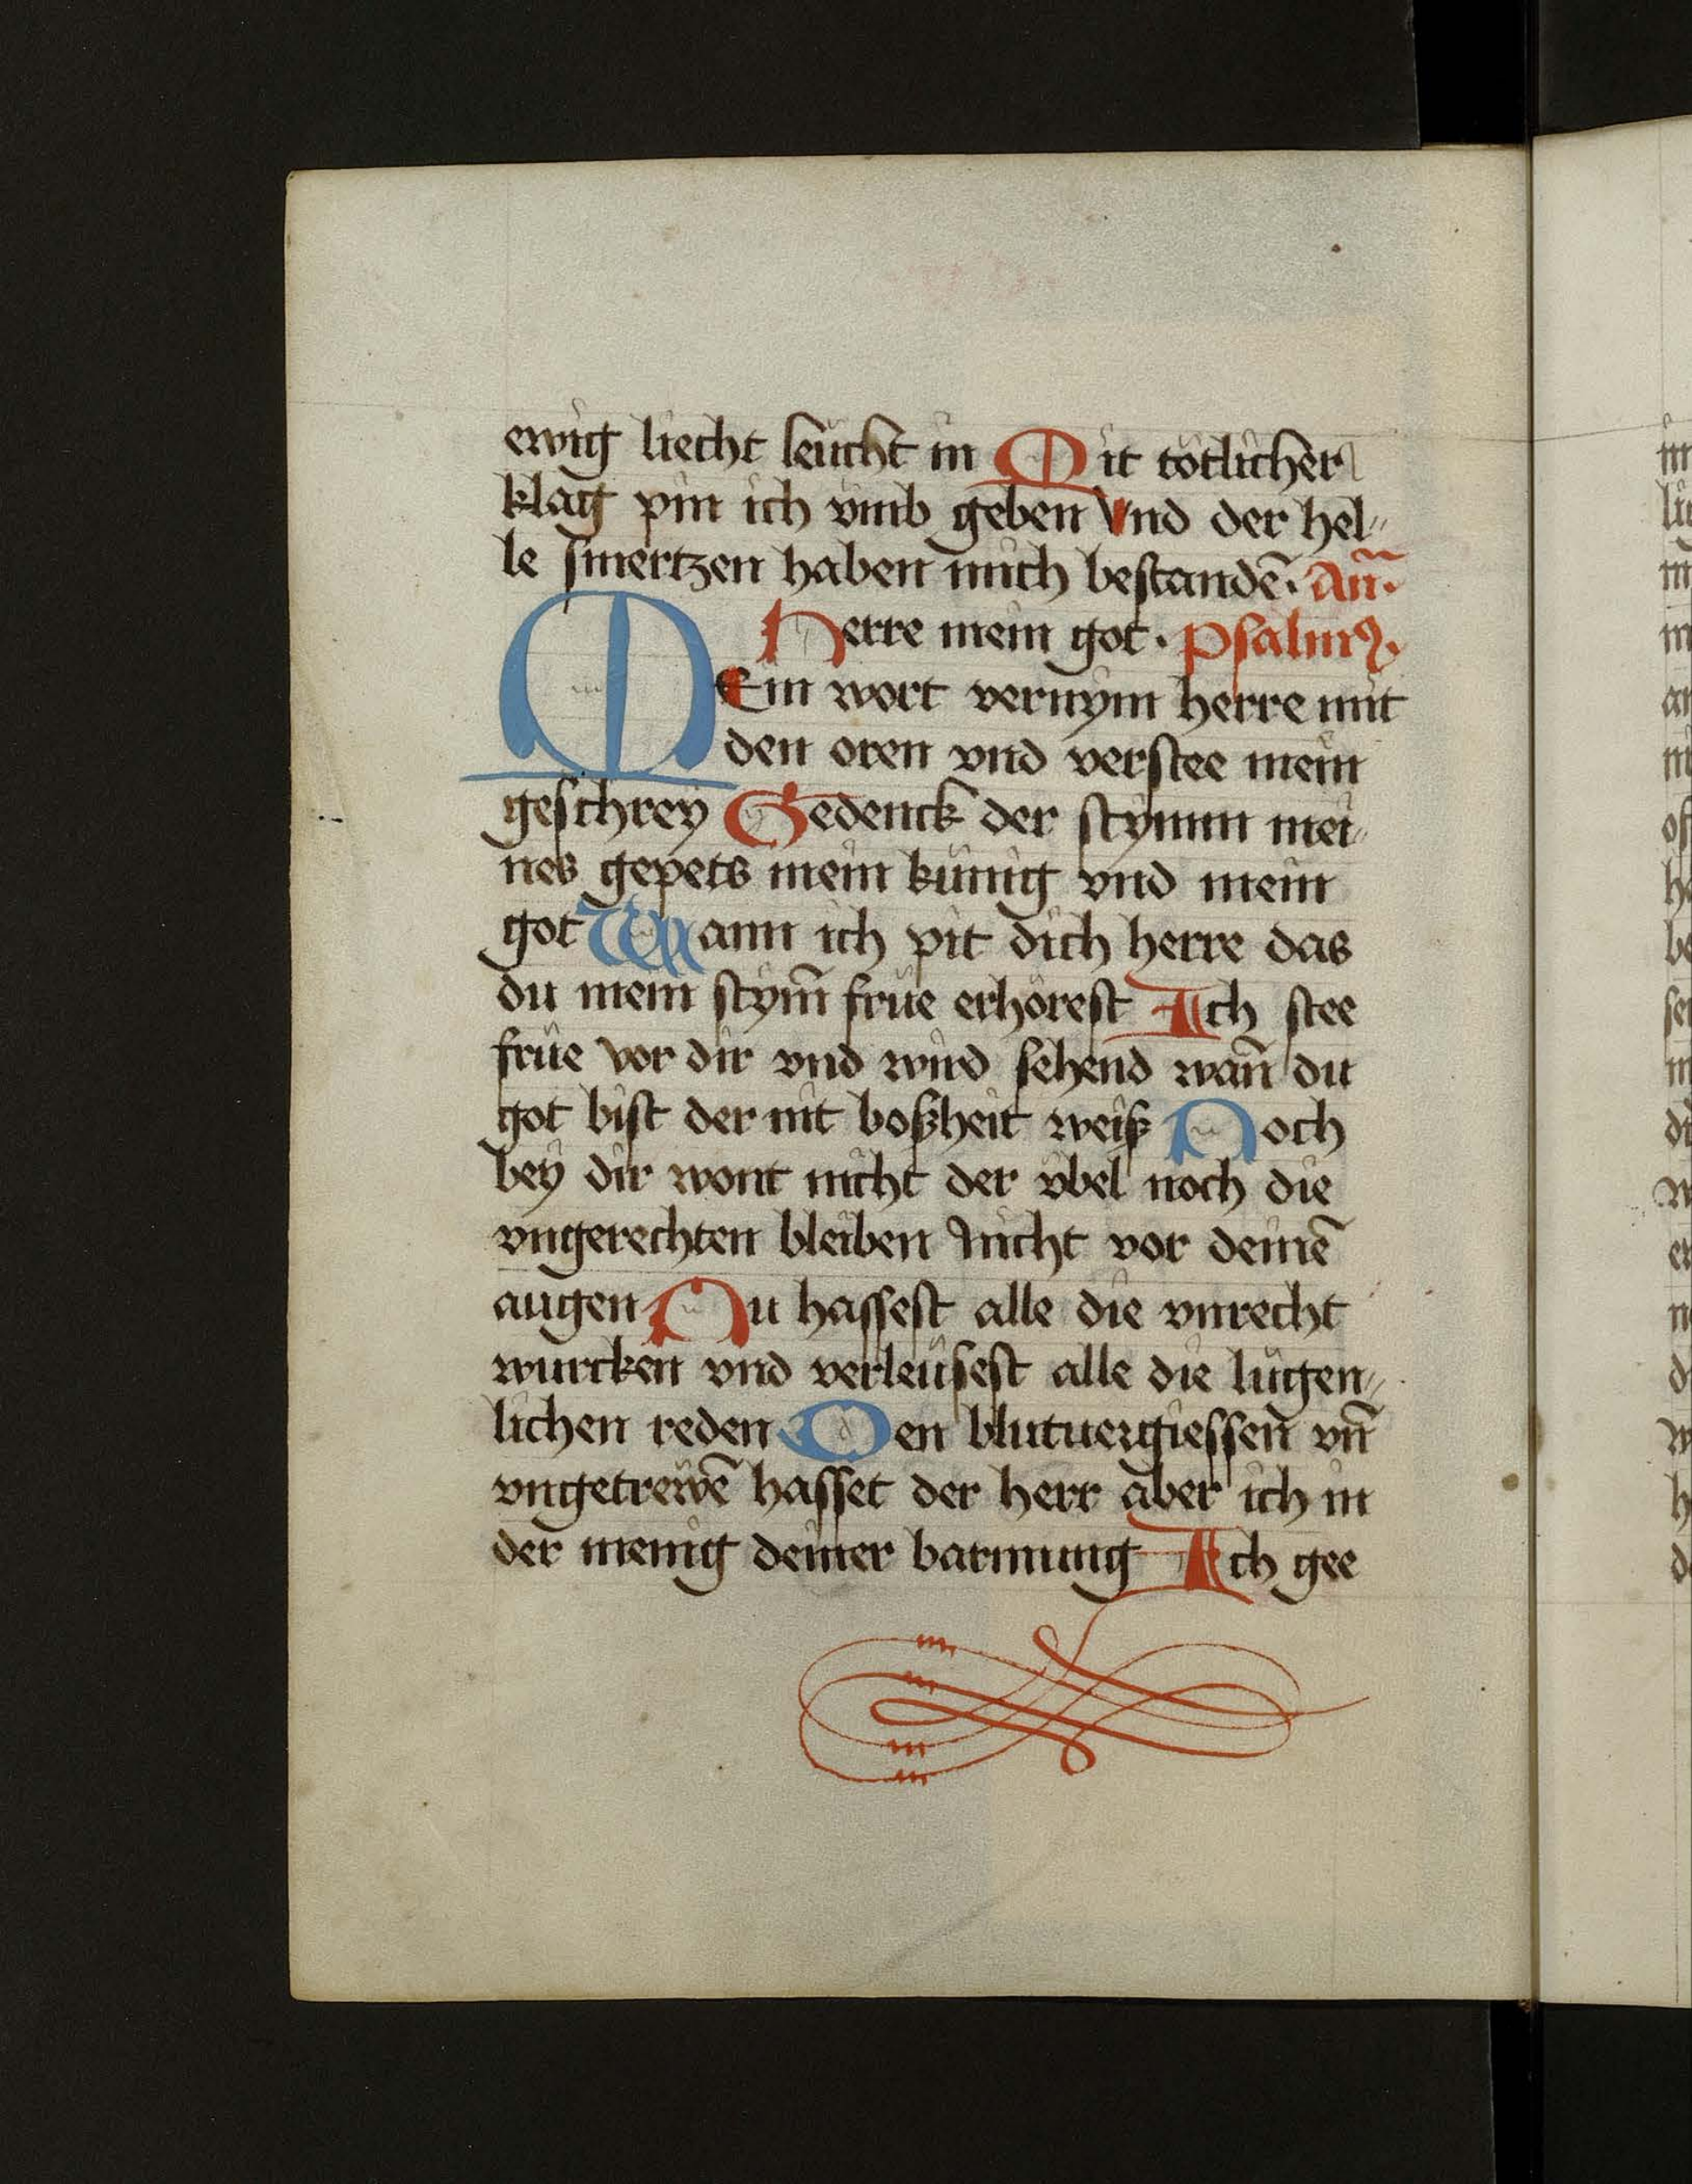 ewig liecht leücht in Mit tötlicher
klag pin ich vmb geben Vnd der hel„
le smertzen haben mich bestandē. Añ.
Herre mein got. Psalmꝯ.
MEin wort vernym herre mit
den oren vnd verstee mein
geschrey Gedenck der stymm mei„
nes gepets mein künig vnd mein
got Wann ich pit dich herre das
du mein stym̄ früe erhörest Ich stee
früe vor dir vnd wird sehend wan̄ du
got bist der nit boßheit weiß Noch
bey dir wont nicht der vbel noch die
vngerechten bleiben nicht vor deinē
augen Du hassest alle die vnrecht
wurcken vnd verleüsest alle die lügen„
lichen reden Den blutuergiessen vn̄
vngetrewē hasset der herr aber ich in
der menig deiner barmung Ich gee